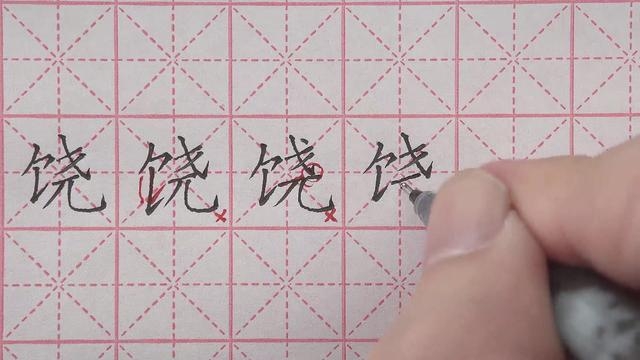 饶饶饶